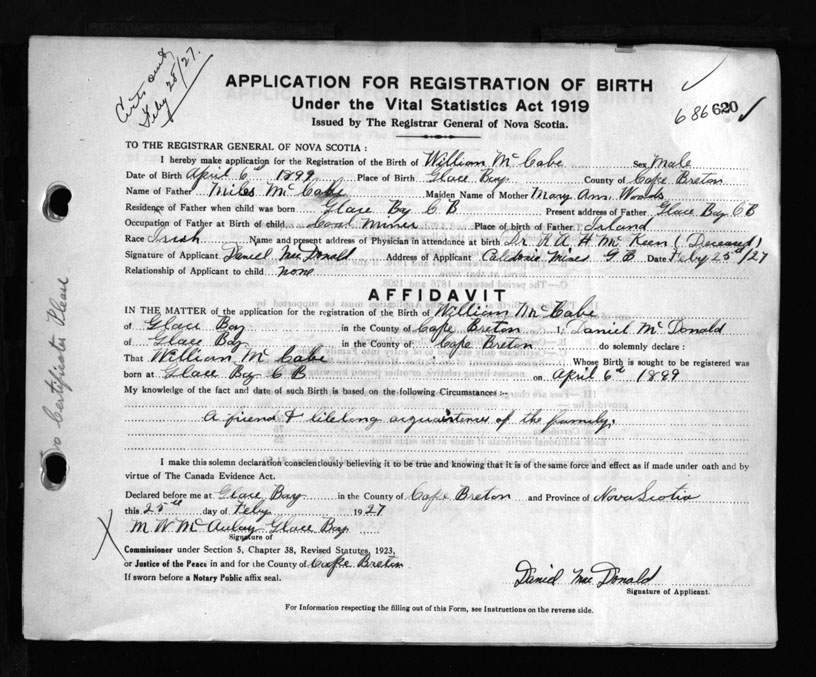 Feby 25/27.
APPLICATION FOR REGISTRATION OF BIRTH
Under the Vital Statistics Act 1919
Issued by The Registrar General of Nova Scotia.
686 620
TO THE REGISTRAR GENERAL OF NOVA SCOTIA :
I hereby make application for the Registration of the Birth of William McCabe Sex Male
Date of Birth April 6th 1899 Place of Birth Glace Bay County of Cape Breton
Name of Father Miles McCabe Maiden Name of Mother Mary Ann Woods
Residence of Father when child was born Glace Bay C B Present address of Father Glace Bay C B
Occupation of Father at Birth of child Coal Miner Place of birth of Father Island
Race Irish Name and present address of Physician in attendance at birth Dr R A H McKeen (Deceased)
Signature of Applicant Daniel MacDonald Address of Applicant Caledonia Mines G B Date Feby 25th/27
Relationship of Applicant to child none
AFFIDAVIT
IN THE MATTER of the application for the registration of the Birth of William McCabe
of Glace Bay in the County of Cape Breton I, Daniel McDonald
of Glace Bay in the County of Cape Breton do solemnly declare :
That William McCabe Whose Birth is sought to be registered was
born at Glace Bay C B on April 6th 1899
My knowledge of the fact and date of such Birth is based on the following Circumstances :-
A friend & lifelong acquaintence of the family.
I make this solemn declaration conscientiously believing it to be true and knowing that it is of the same force and effect as if made under oath and by
virtue of The Canada Evidence Act.
Declared before me at Glace Bay in the County of Cape Breton and Province of Nova Scotia
this 25th day of Feby 1927
M W McAulay Glace Bay
Signature of
X Commissioner under Section 5, Chapter 38, Revised Statutes, 1923,
or Justice of the Peace in and for the County of Cape Breton
If sworn before a Notary Public affix seal.
Daniel MacDonald
Signature of Applicant.
For Information respecting the filling out of this Form, see Instructions on the reverse side.
No Certificate Please